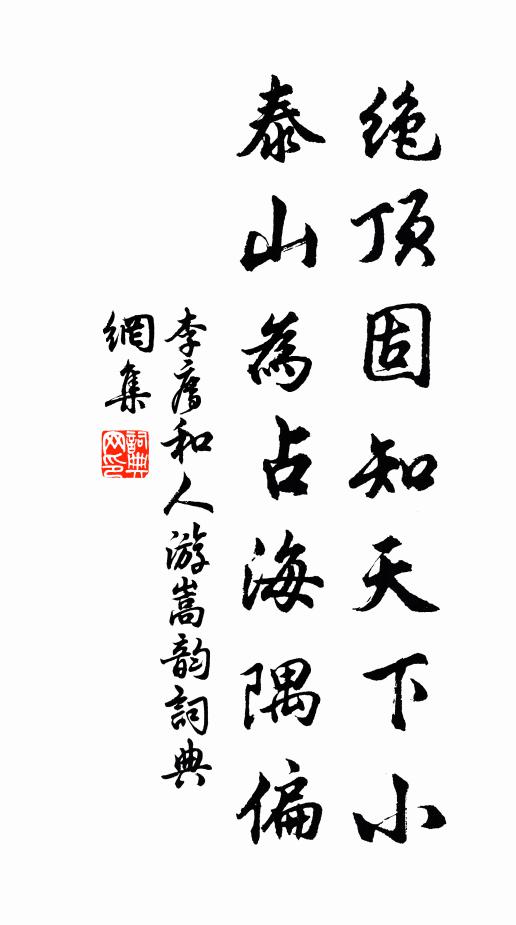 绝顶固知天下小
泰山為占海隅偏
李廌和人游嵩韵詞典
網集
詞典
网印